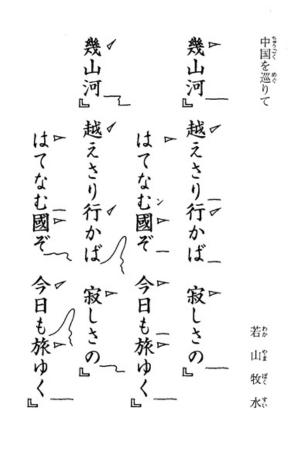 中国を巡りて
若山牧水
幾山河』 越えさり行かば 寂しさの』
はてなむ國ぞ 今日も旅ゆく』
幾山河』 越えさり行かば 寂しさの』
はてなむ國ぞ 今日も旅ゆく』